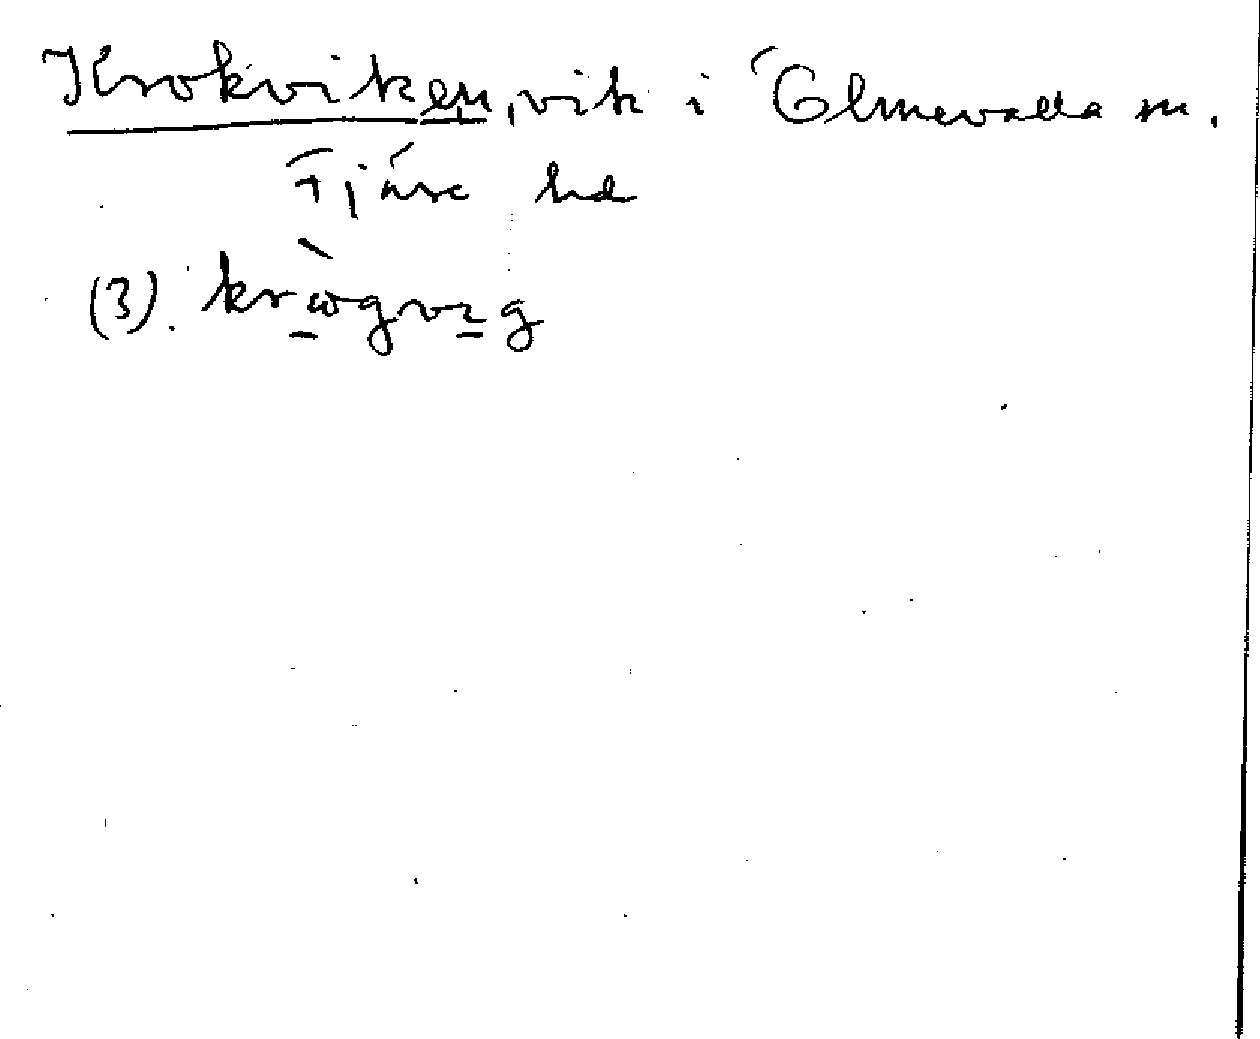 Krokviken, vik i Ölmevalla sn.
Fjäre hd
(3). krωgvıg